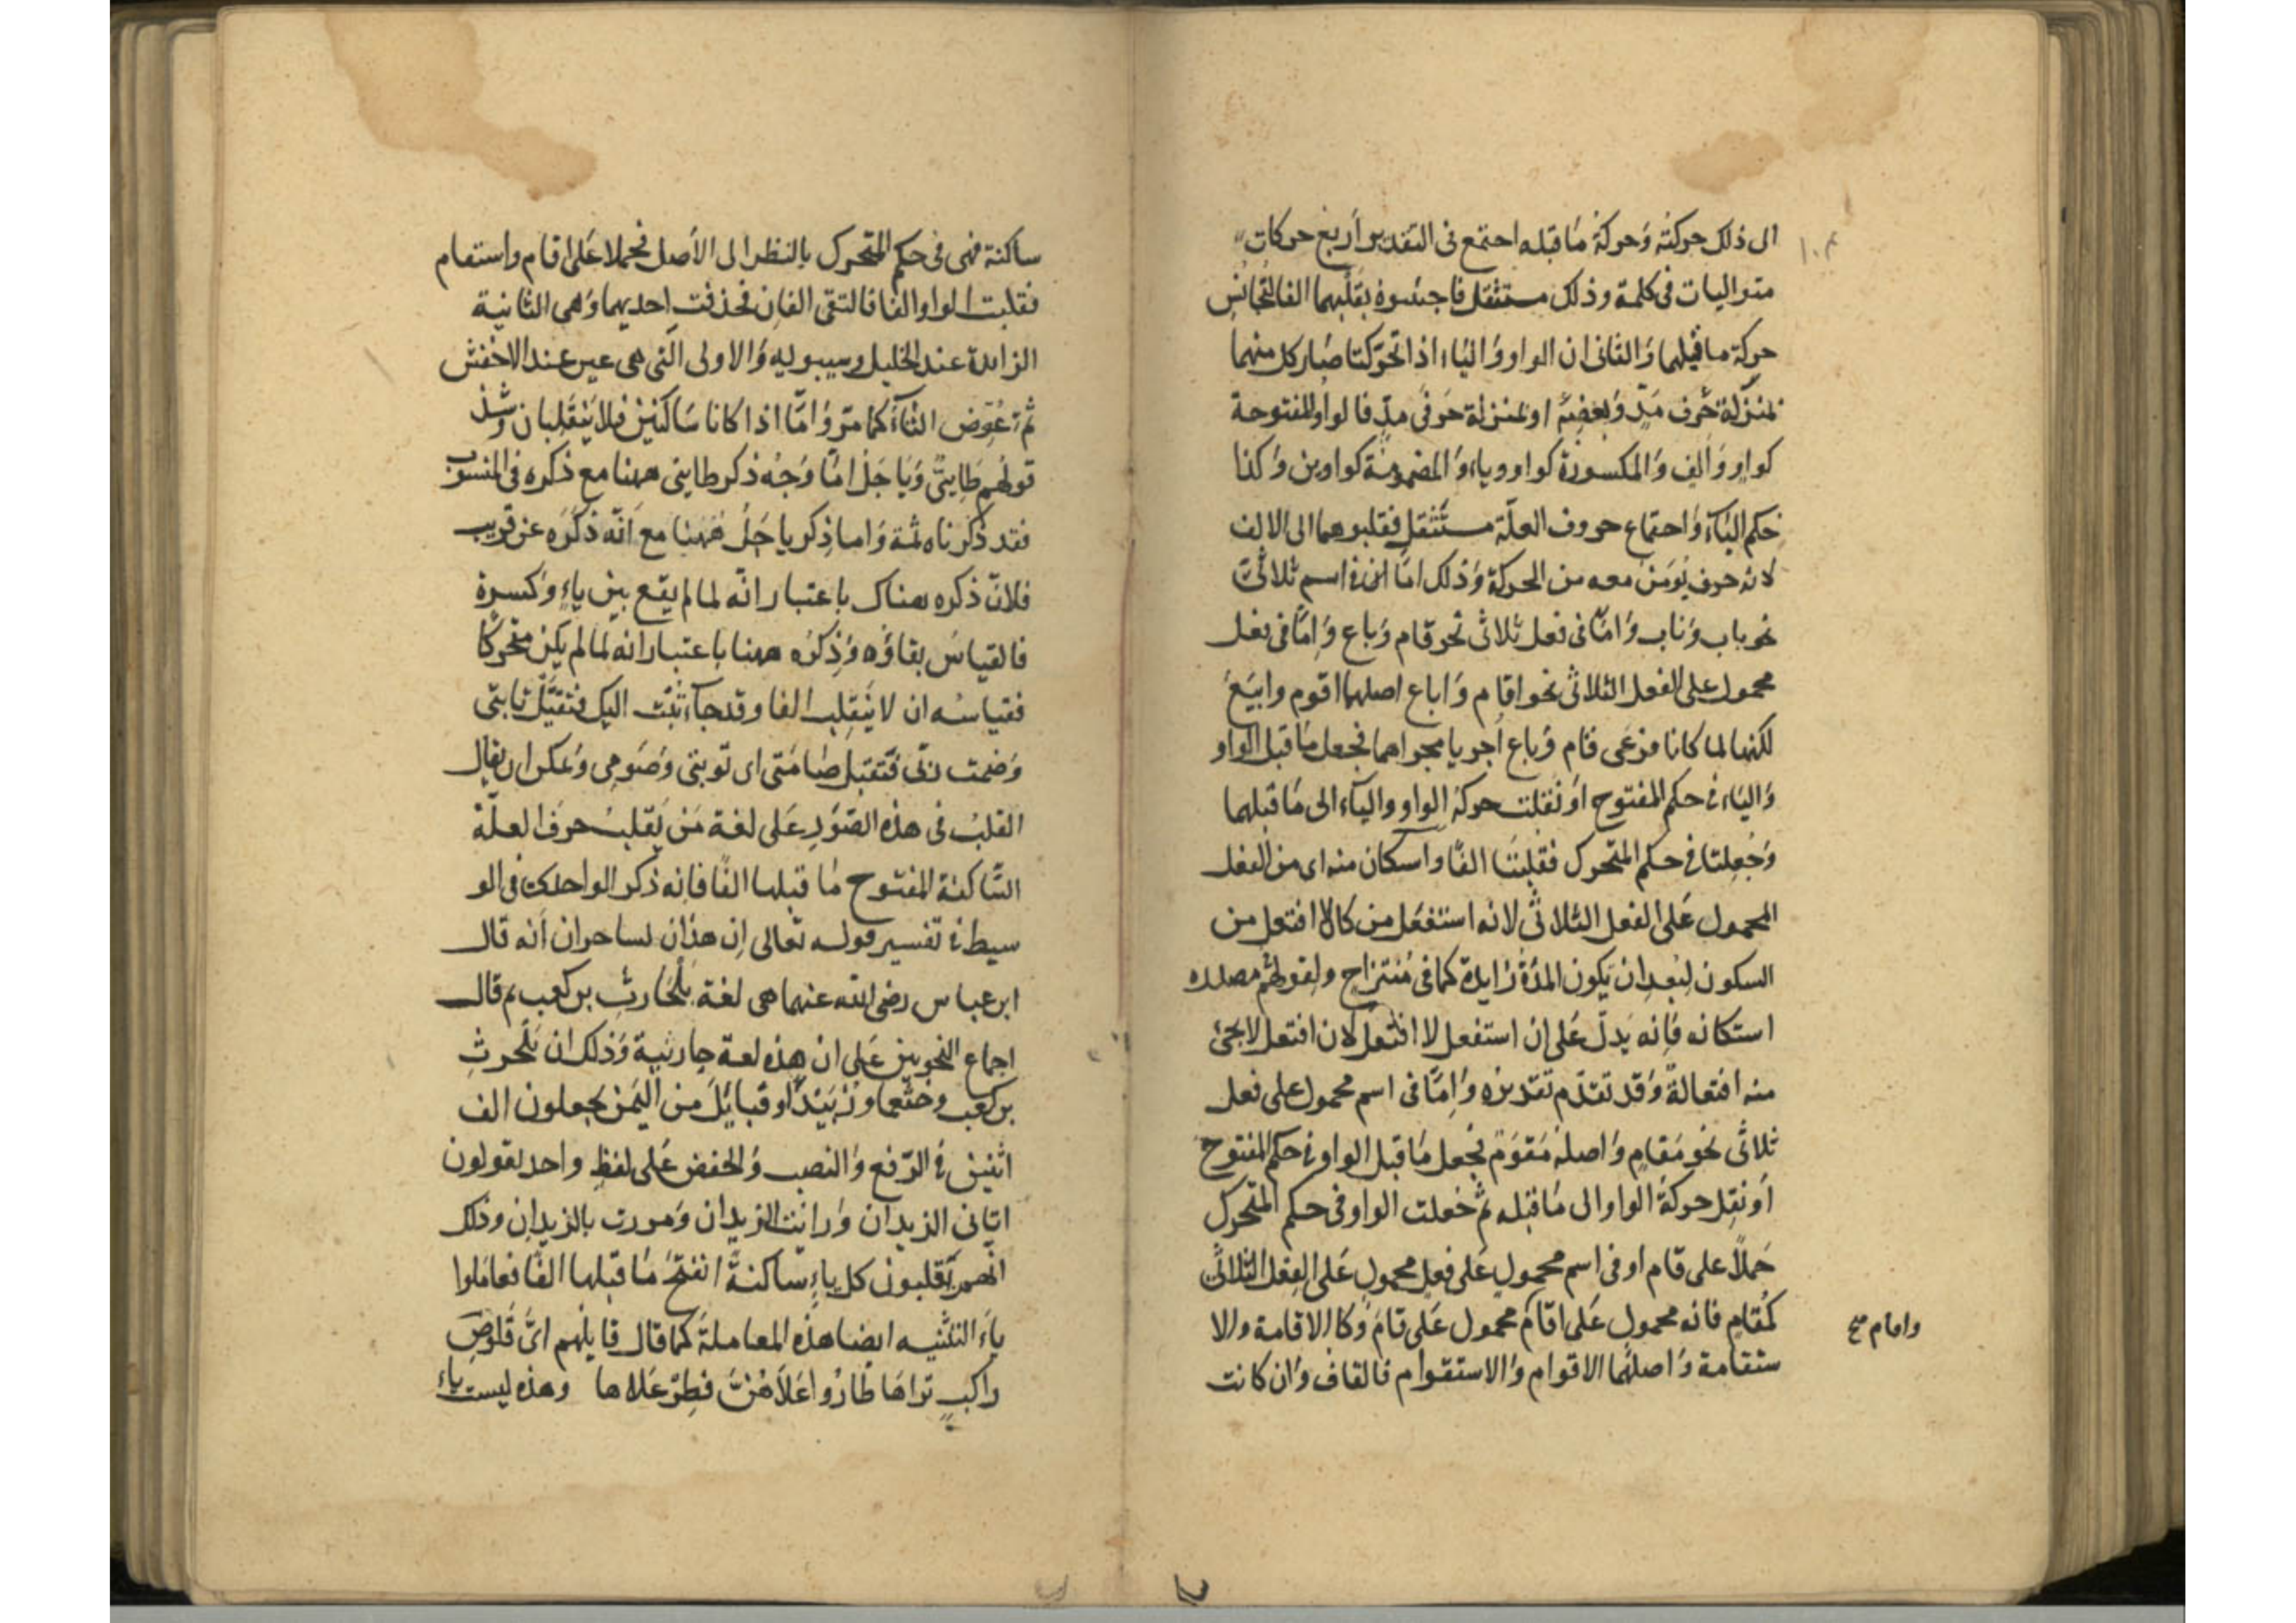 الى ذلك حركته وَحركةُ مَا قبله احتمع فى التقدير اَربع حركات
متواليات فى كلمة وذلك مستثقل فاجتنبوه بقلبهما الفا لتجانُس
حركة ما قبلهما وَالثانى ان الواو وَاليَاء اذا تحرّكتا صَار كل منهما
بمنزلة حَرف مَدٍّ وَبعضِه او بمنزلة حَرفَى مدٍّ فالواو المفتوحة
كواوٍ وَاَلفٍ وَالمكسورة كواو وياء وَالمضمومَة كواوين وَكذا
حكم اليَآء وَاحتماع حروف العلّة مستثقل فقلبوهما الى الالف
لانه حرف يُومَن معه من الحركة وَذلك امّا فى اسم ثلاثىّ
نحو باب وَناب وَامّا فى فعل ثلاثى نحو قام وَباع وَامّا فى فعل
محمول على الفعل الثلاثى نحو اقام وَاباع اصلهما اقوم وابيَعَ
لكنهما لما كانا فرعَى قام وَباع اُجريا مجراهما فجعل مَا قبل الواو
وَاليَاء فى حكم المفتوح اوْ نُقلت حركة الواو والياَء الى مَا قبلهما
وَجُعِلتا فى حكم المتحرك فقُلِبَتَا الفًا واستكان منه اى من الفعل
المحمول عَلى الفعل الثلاثىّ لانه استفعَل من كان لا افتعل من
السكون لبُعدِ ان يَكون المدّة زايدة كما فى مُنتزاح ولقولهُم مصدره
استكانه فاِنه يَدلّ عَلى ان استفعل لا افتعل لان افتعل لا يجئ
منه افتعالةً وَقد تقدّم تقديره وَاِمّا فى اسم محمول على فعل
ثلاثى نحو مَقامٍ وَاصله مَقوَم فجعل مَا قبل الواو فى حكم المفتوح
اَو نقِل حركةُ الواو الى مَا قبله ثم جُعلت الواو فى حكم المتحرّك
حَملاً على قام او فى اِسم محمولٍ عَلى فعلٍ محمولٍ عَلى الفِعل الثلاثىّ
كمُقامٍ فانه محمول عَلى اقام محمول عَلى قامَ وَكالاقامة والا
ستقامة وَاصلهُما الاقوام وَالاستقوام فالقاف وَان كانت
واقام صح
ساكنة فهى فى حكم المتحرك بالنظر الى الاَصل فحملا عَلى اقام واستقام
فقلبت الواو الفا فالتقى الفان فحذفت احديهما وَهى الثانية
الزايدة عند الخليل وسيبويه وَالاولى الّتى هى عين عند الاخفش
ثم تُعوّض التاَء كما مرّ وَامّا اذا كانا سَاكنَين فلا يَنقلِبان وَشذ
قولهُم طَايىّ وَيَاجَل امَّا وَجُه ذكر طايى ههنا مع ذكره فى المنسوب
فقد ذكرناه ثمة وَاما ذِكر ياجَلُ هَهُنا مع اَنّه ذكَرَه عن قريب
فلانّ ذكره هناك باعتبار انّه لما لم يقع بين ياءٍ وَكسرة
فالقياسُ بقاؤه وَذِكرُه ههنا باعتبار انه لما لم يكن متحركًا
فقياسُه ان لا يَنقلِب الفا وقد جآء تُبْتُ اليك فتقبَّل تابتى
وَصمت ربّى فَتَقبل صَامَتى اى توبتى وَصَومِى وَيمكن ان يقال
القلبُ فى هذه الصّوَر عَلى لغة مَن يَقلِبُ حرفَ العلّة
السّاكنة المفتوح مَا قبلها الفًا فانه ذكر الواحدى فى الو
سيط فى تفسير قوله تعالى اِن هذٰان لساحران اَنه قال
ابن عباس رضى الله عنهما هى لغة بَلْحَارثِ بن كعب ثم قال
اجماع النحويين عَلى ان هذه لغة حارثية وَذلك ان بَلْحرثِ
بن كعب وخثعما وزُبَيْدًا وقبايَل مِن اليَمَن يجعلون الف
اثنين فى الرّفع وَالنصب وَالخفض عَلى لفظٍ واحد يقولون
اتانى الزيدان وَرايت الزيدان وَمررت بالزيدان وذلك
انهم يَقلبون كل ياءٍ ساكنةً انفتحَ مَا قبلها الفًا فعامَلوا
ياَء التثنيه ايضا هذه المعاملة كما قال قايلهم اىَّ قَلوصِ
راكبٍ تراهَا طارُوا عَلاَهُنَّ فطِرْ عَلاها وهذه ليست بياء